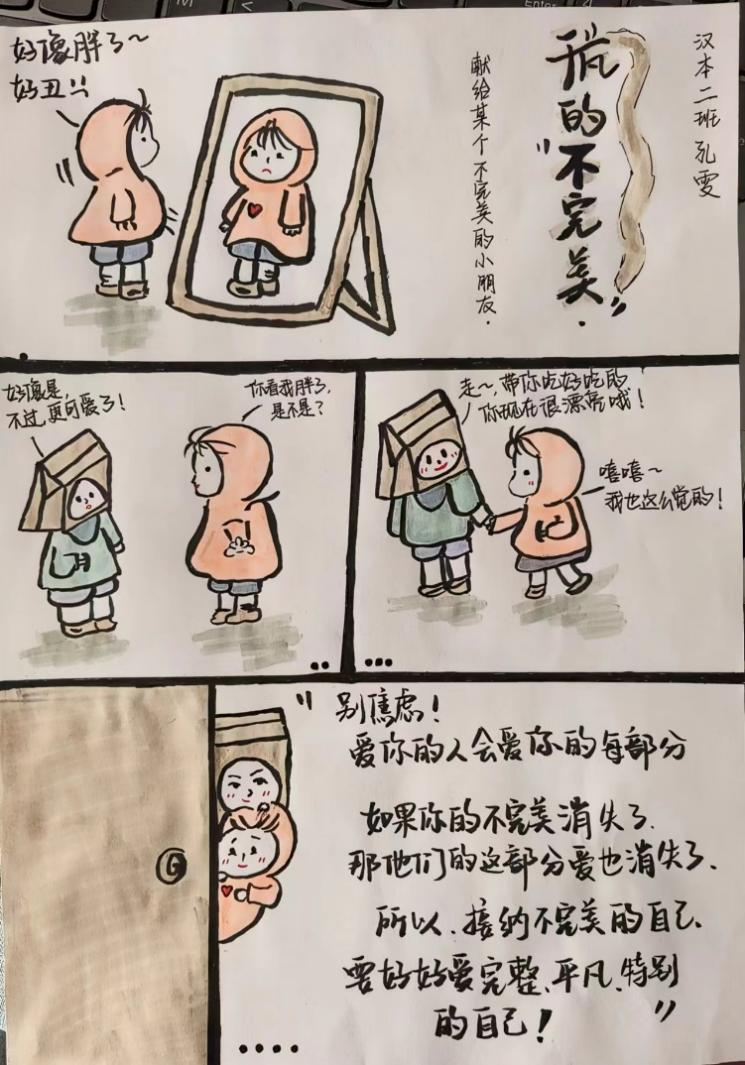 汉本二班 孔雯
我的"不完美."
献给某个不完美的小朋友.
好像胖了~
好丑!!
好像是,
不过,更可爱了!
你看我胖了,
是不是?
走~,带你吃好吃的
你现在很漂亮哦!
嘻嘻~
我也这么觉的!
"别焦虑!
爱你的人会爱你的每部分
如果你的不完美消失了.
那他们的这部分爱也消失了.
所以、接纳不完美的自己、
要好好爱完整、平凡、特别
的自己!"